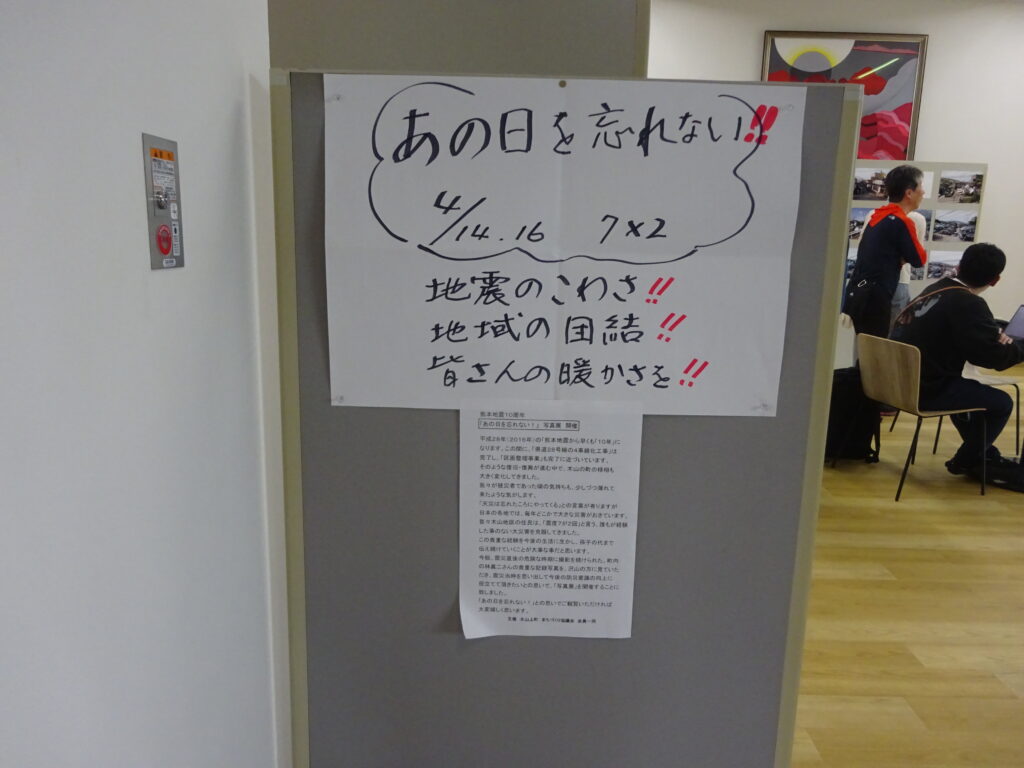 あの日を忘れない!!
4/14.16 7×2
地震のこわさ!!
地域の団結!!
皆さんの暖かさを!!
熊本地震10周年
「あの日を忘れない!」 写真展 開催
平成28年(2016年)の「熊本地震から早くも「10年」に
なります。この間に、「県道28号線の4車線化工事」は
完了し、「区画整理事業」も完了に近づいています。
そのような復旧・復興が進む中で、木山の町の様相も
大きく変化してきました。
我々が被災者であった頃の気持ちも、少しづつ薄れて
来たような気がします。
「天災は忘れたころにやってくる」との言葉が有りますが
日本の各地では、毎年どこかで大きな災害がおきています。
我々木山地区の住民は、「震度7が2回」と言う、誰もが経験
した事のない大災害を克服してきました。
この貴重な経験を今後の生活に生かし、孫子の代まで
伝え続けていくことが大事な事だと思います。
今般、震災直後の危険な時期に撮影を続けられた、町内
の林眞二さんの貴重な記録写真を、沢山の方に見ていた
だき、震災当時を思い出して今後の防災意識の向上に
役立てて頂きたいとの思いで、「写真展」を開催することに
致しました。
「あの日を忘れない!」との思いでご観覧いただければ
大変嬉しく思います。
主催 木山上町 まちづくり協議会 会員一同